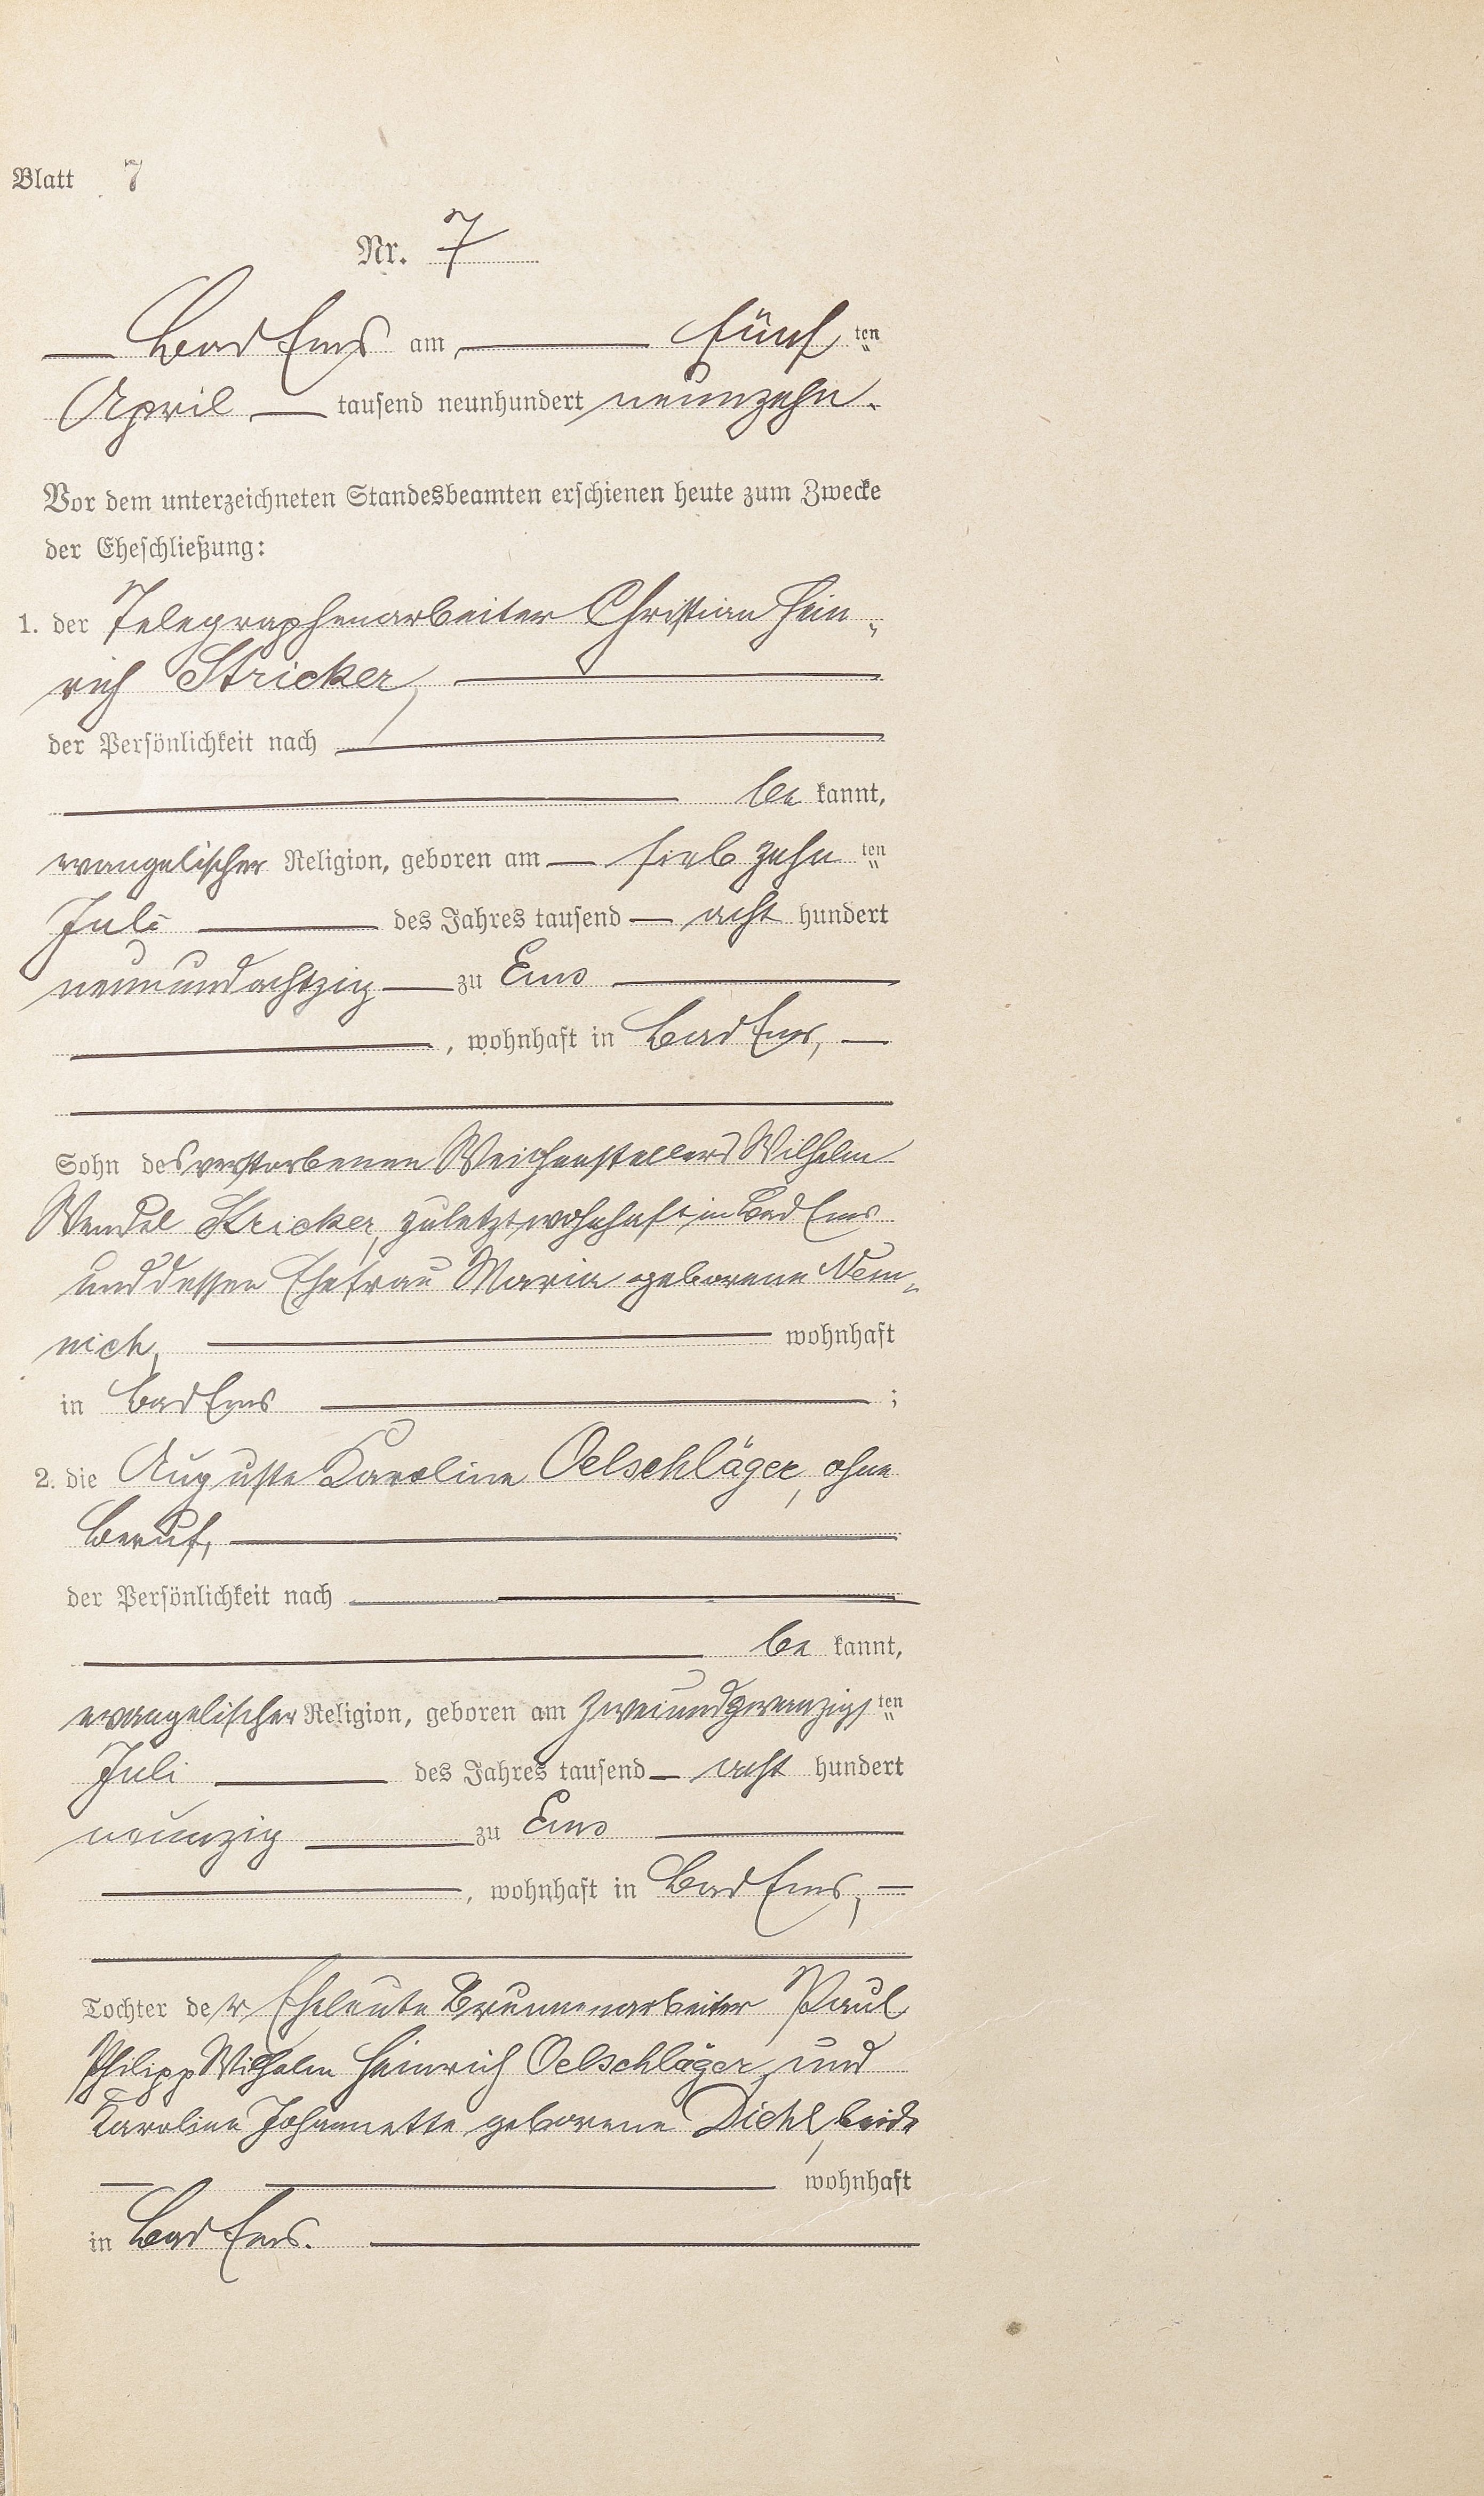 Blatt 7
Nr. 7
Bad Ems am fünf ten
April tausend neunhundert neunzehn.
Vor dem unterzeichneten Standesbeamten erschienen heute zum Zwecke
der Eheschließung:
1. der Telegraphenarbeiter Christian Hein-
rich Stricker,
der Persönlichkeit nach
be kannt,
evangelischer Religion, geboren am siebzehn ten
Juli des Jahres tausend acht hundert
neunundachtzig zu Ems
, wohnhaft in Bad Ems,
Sohn des verstorbenen Weichenstellers Wilhelm
Wendel Stricker, zuletzt wohnhaft in Bad Ems
und dessen Ehefrau Maria geborene Nem-
nich, wohnhaft
in Bad Ems ;
2. die Auguste Karoline Oelschläger, ohne
Beruf,
der Persönlichkeit nach
be kannt,
evangelischer Religion, geboren am zweiundzwanzigs ten
Juli des Jahres tausend acht hundert
neunzig zu Ems
, wohnhaft in Bad Ems,
Tochter der Eheleute Brunnenarbeiter Paul
Philipp Wilhelm Heinrich Oelschläger und
Karoline Johannette geborene Diehl, beide
wohnhaft
in Bad Ems.